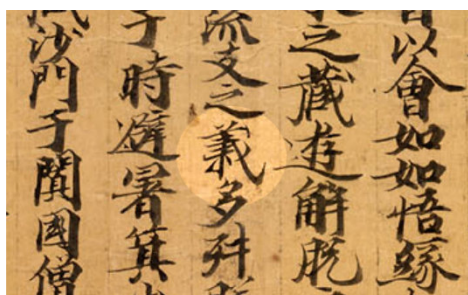 以會如如悟緣
之藏遊解脫
流支之義多舛
于時避暑箕
沙門于闐國僧